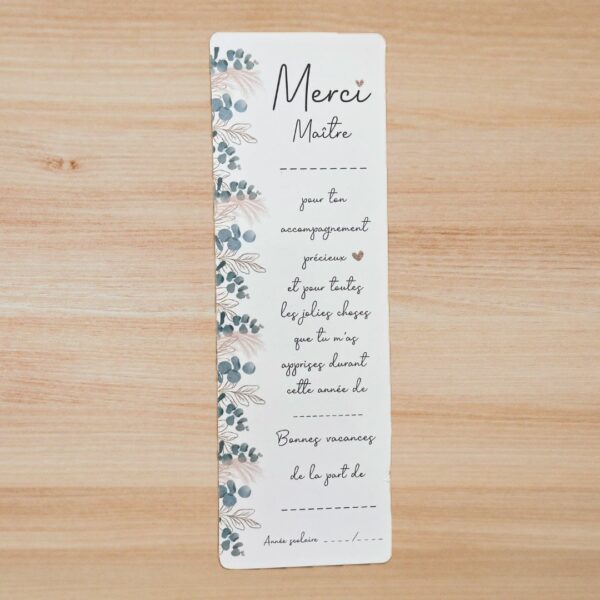 Merci
Maître
__________
pour ton
accompagnement
précieux
et pour toutes
les jolies choses
que tu m'as
apprises durant
cette année de
__________
Bonnes vacances
de la part de
__________
Année scolaire ____/____